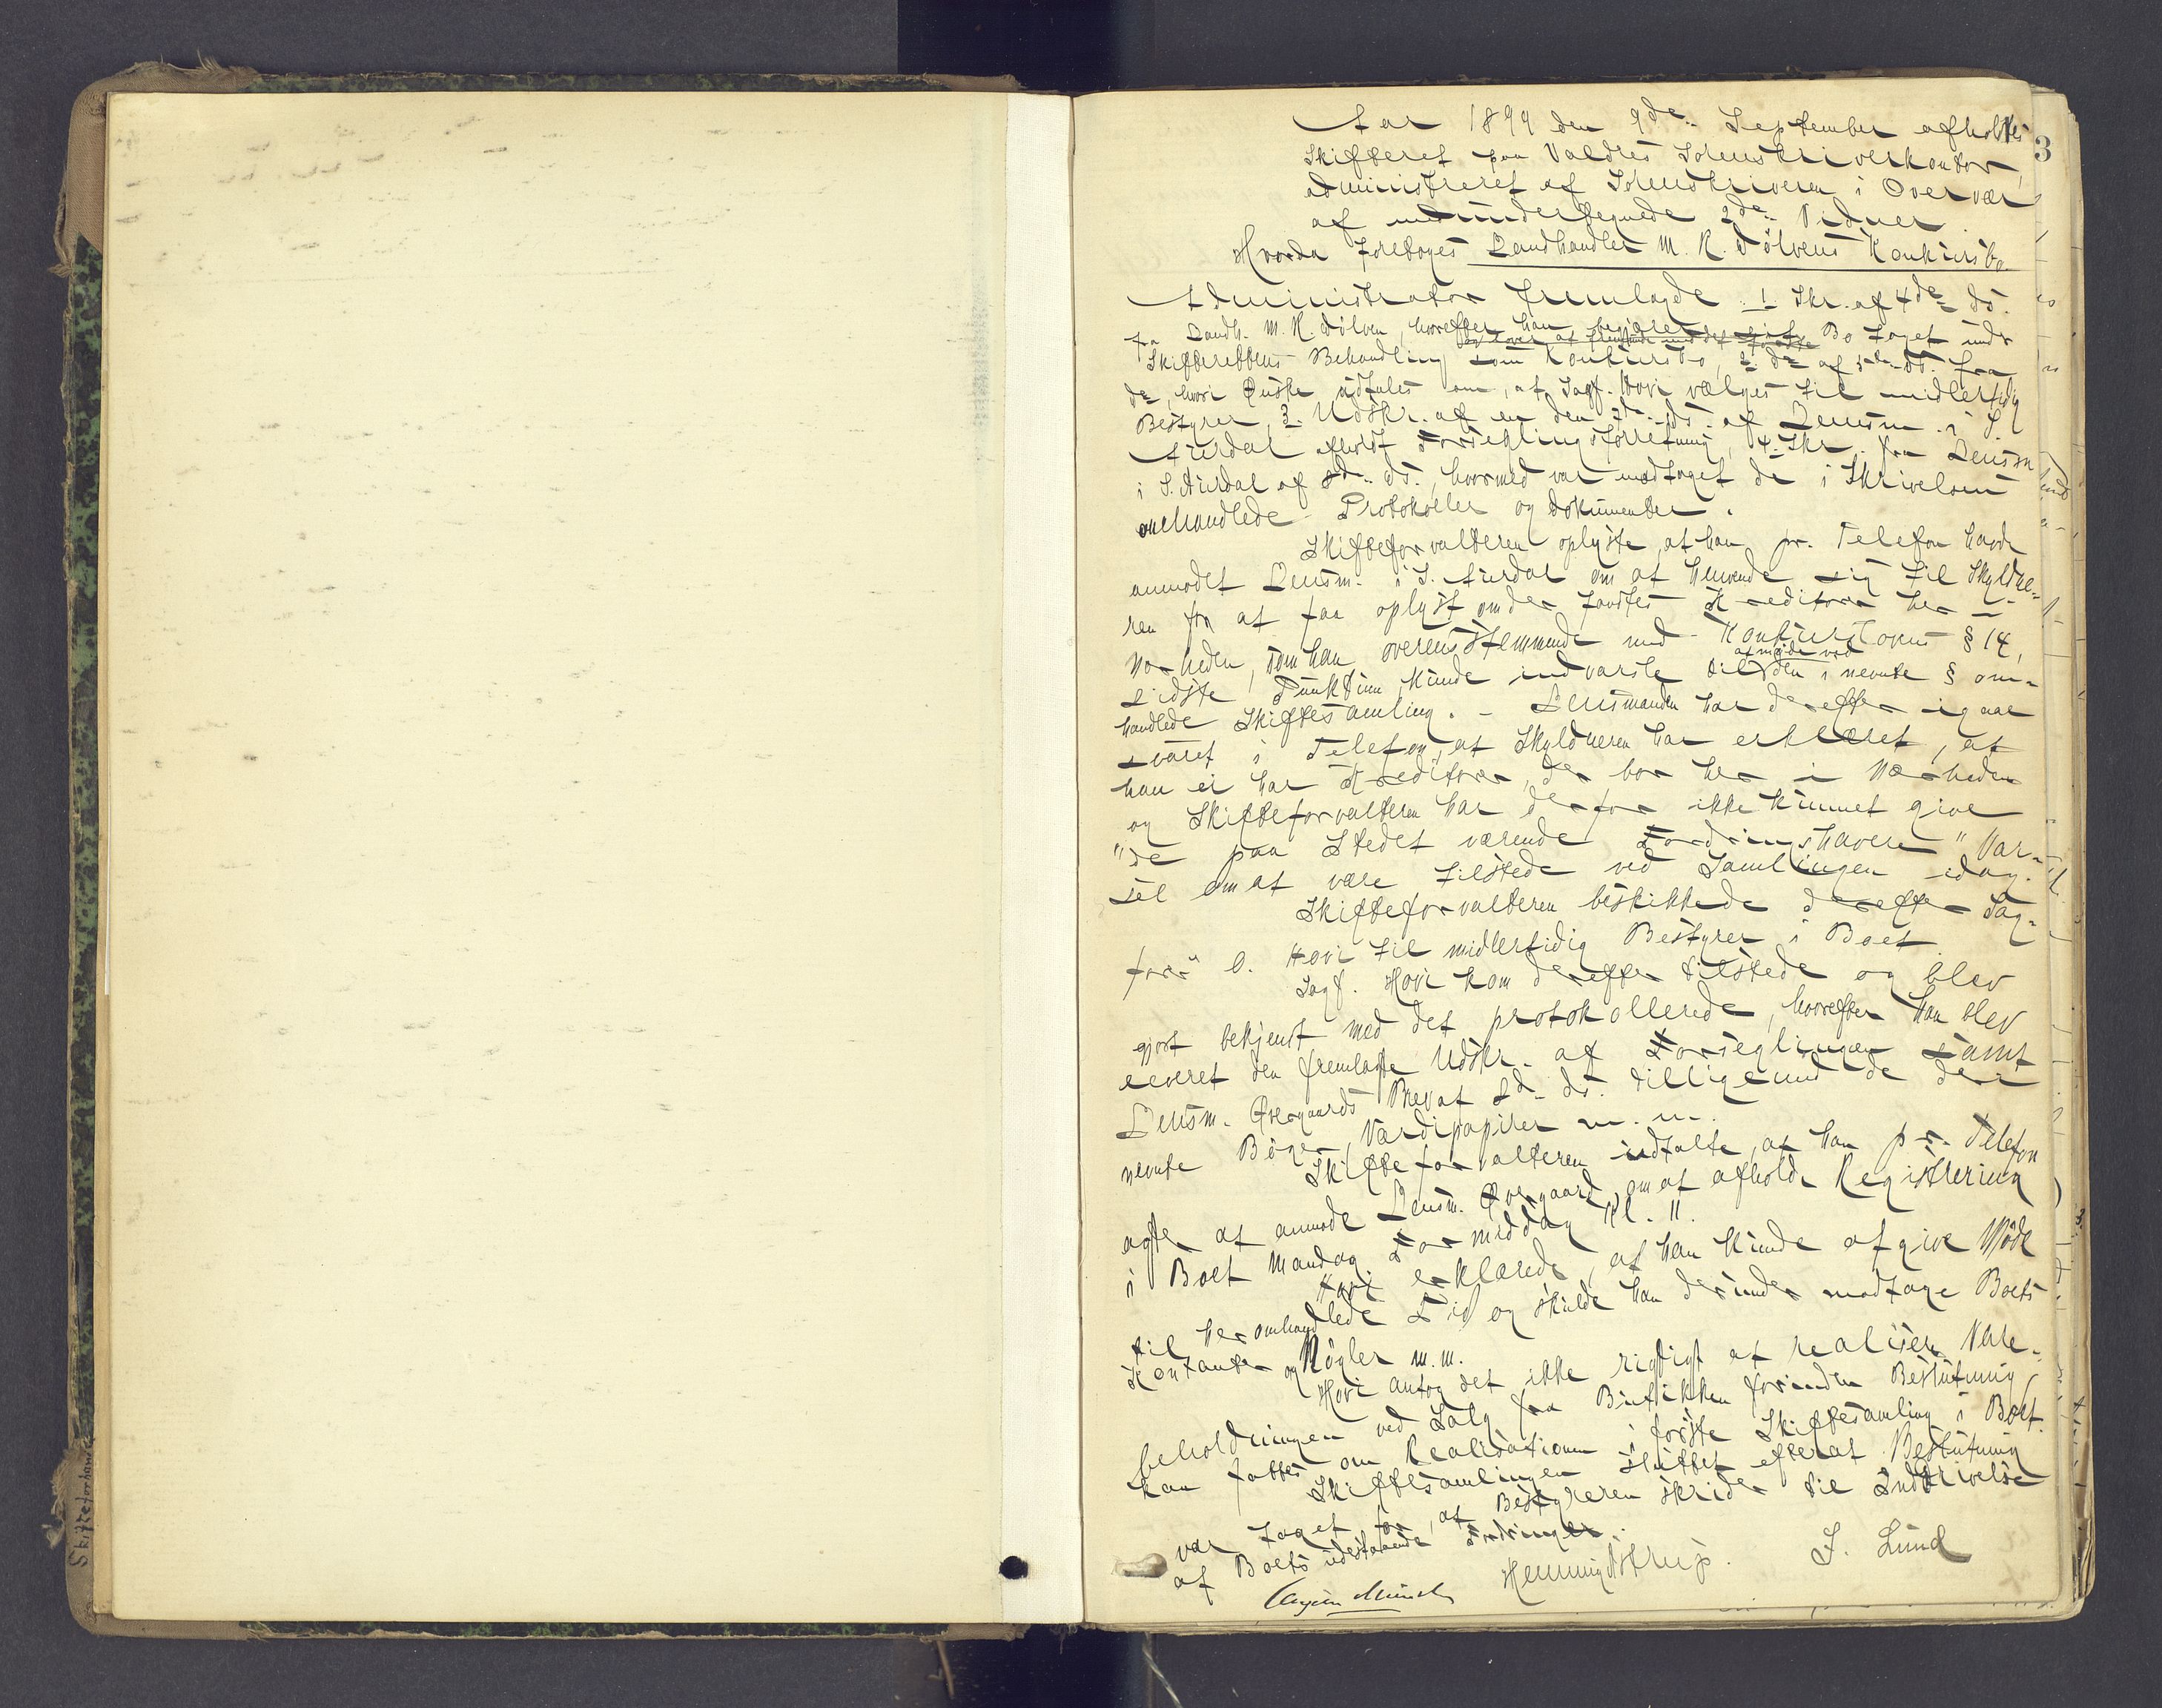 3
Aar 1899 den 9de September afholdtes
Skifteret paa Valdres Sorenskriverkontor,
administreret af Sorenskriveren i Overvær
af medundertegnede 2de Vidner.
Hvorda foretoges Landhandler M. K. Dølvens Konkursbo.
Administrator fremlagde 1. Skr. af 4de ds.
fra Landh. M. K. Dølven, hvorefter han begjærer sit Bo taget under
Skifterettens Behandling som Konkursbo, 2. do af 5te ds. fra
do, hvori Ønske udtales om, at Sagf. Hovi vælges til midlertidig
Bestyrer, 3. Udskr. af en den 7de ds. af Lensm. i S.
Aurdal afholdt Forseglingsforretning, 4. Skr. fra Lensm
i S. Aurdal af 8de ds., hvormed var modtaget de i Skrivelsen
omhandlede Protokoller og Dokumenter.
Skifteforvalteren oplyste, at han pr. Telefon havde
anmodet Lensm. i S. Aurdal om at henvende sig til Skyldne-
ren for at faa oplyst om der fandtes Kreditorer her i
Nærheden, som han overensstemmende med Konkurslovens § 14,
sidste Punktum kunde indvarsle til at møde ved den i nevnte § om-
handlede Skiftesamling. - Lensmanden har derefter igaar
svaret i Telefon, at Skyldneren har erklæret, at
han ei har Kreditorer, der bor her i Nærheden
og Skifteforvalteren har derfor ikke kunnet give
"de paa Stedet værende Fordringshavere" Var-
sel om at være tilstede ved Samlingen idag.
Skifteforvalteren beskikkede derefter Sag-
fører O. Hovi til midlertidig Bestyrer i Boet.
Sagf. Hovi kom derefter tilstede og blev
gjort bekjent med det protokollerede, hvorefter han blev
leveret den fremlagte Udskr. af Forseglingen samt
Lensm. Øvergaards Brev af 8de ds. tilligemed de deri
nevnte Bøger, Værdipapirer m. m.
Skifteforvalteren udtalte, at han pr. Telefon
agter at anmode Lensm. Øvergaard om at afholde Registrering
i Boet Mandag Formiddag Kl. 11.
Hovi erklærede, at han kunde afgive Møde
til her omhandlede Tid og skulde han derunder modtage Boets
Kontanter og Nøgler m.m.
Hovi antog det ikke rigtigt at realisere Vare-
beholdningen ved Salg fra Butikken forinden Beslutning
kan fattes om Realisationen i første Skiftesamling i Boet.
Skiftesamlingen sluttet efterat Beslutning
var taget for, at Bestyreren skrider til Inddrivelse
af Boets udestaaende Fordringer.
Henning Astrup. J. Lund
Münch
Skifteforhand